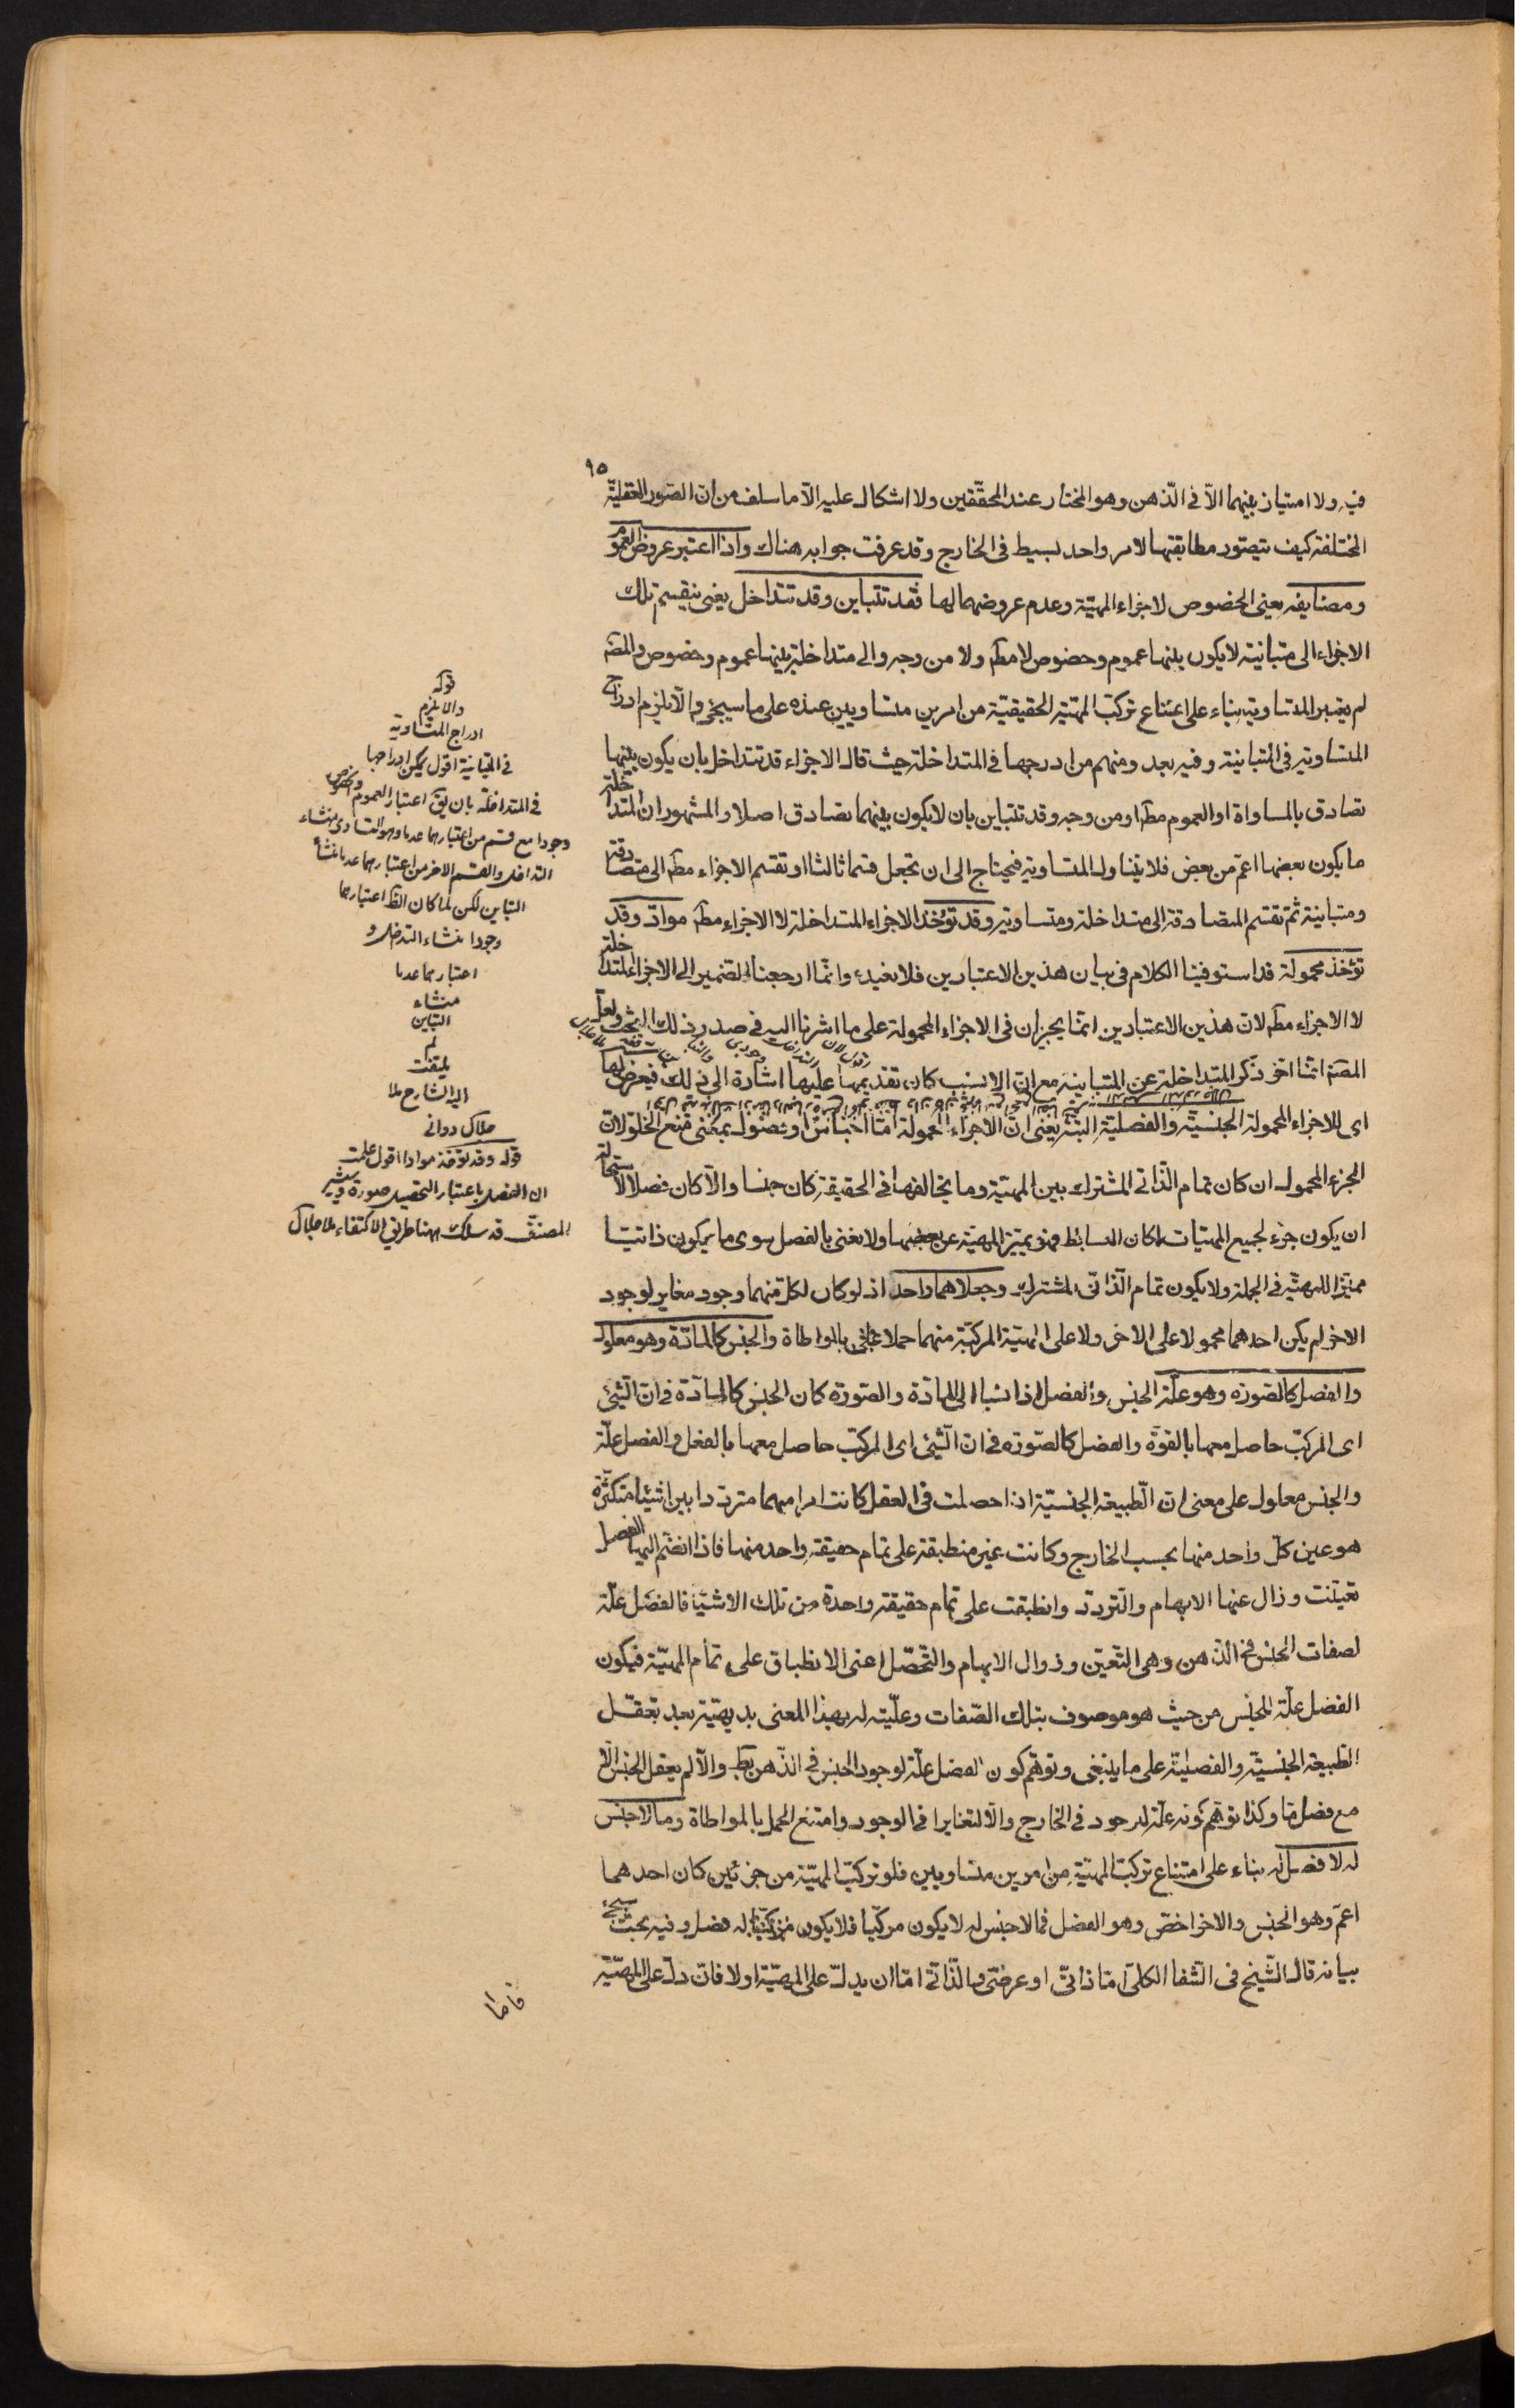 ٩٥
فيه ولا امتياز بينهما الّا فى الذّهن وهو المختار عند المحقّقين ولا اشكال عليه الّا ما سلف من انّ الصّور العقليّة
المختلفة كيف يتصّور مطابقتها لامر واحد بسيط فى الخارج وقد عرفت جوابه هناك واذا اعتبر عروض العموم
ومضايفه يعنى الخصوص لاجزاء المهيّة وعدم عروضهما لها فقد تتباين وقد تتداخل يعنى ينقسم تلك
الاجزاء الى متباينة لا يكون بينها عموم وخصوص لا مطلقا ولا من وجه والى متداخلة بينها عموم وخصوص والمصّ
لم يعتبر المتساوية بناء على امتناع تركّب المهيّة الحقيقيّة من امرين متساويين عنده على ما سيجئ والّا يلزم ادراج
المتساوية فى المتباينة وفيه بعد ومنهم من ادرجها فى المتداخلة حيث قال الاجزاء قد تتداخل بان يكون بينها
تصادق بالمساواة او العموم مطلقا او من وجه وقد تتباين بان لا يكون بينهما تصادق اصلا والمشهور ان المتداخلة
ما يكون بعضها اعمّ من بعض فلا يتناول المتساوية فيحتاج الى ان تجعل قسما ثالثا او تقسم الاجزاء مطلقا الى متصادقة
ومتباينة ثمّ تقسم المتصادقة الى متداخلة ومتساوية وقد تؤخذ الاجزاء المتداخلة لا الاجزاء مطلقا موادّ وقد
تؤخذ محمولة قد استوفينا الكلام فى بيان هذين الاعتبارين فلا نعيده وانّما ارجعنا الضمير الى الاجزاء المتداخلة
لا الاجزاء مطلقا لانّ هذين الاعتبارين انّما يجريان فى الاجزاء المحمولة على ما اشرنا اليه فى صدر ذلك البحث ولعلّ
المصّ انّما اخّر ذكر المتداخلة عن المتباينة مع انّ الانسب كان تقديمها عليها اشارة الى ذلك فيعرض لها
اى للاجزاء المحمولة الجنسيّة والفصليّة البتّة يعنى انّ الاجزاء المحمولة امّا اجناس او فصول بمعنى منع الخلوّ لانّ
الجزء المحمول ان كان تمام الذّاتى المشترك بين المهيّة وما يخالفها فى الحقيقة كان جنسا والّا كان فصلا لاستحالة
ان يكون جزء لجميع المهيّات لمكان البسائط فهو يميّز المهيّة عن بعضها ولا نعنى بالفصل سوى ما يكون ذاتيّا
مميّزا للمهيّة فى الجملة ولا يكون تمام الذّاتى المشترك وجعلاهما واحد اذ لو كان لكلّ منهما وجود مغاير لوجود
الاخر لم يكن احدهما محمولا على الاخر ولا على المهيّة المركّبة منهما حملا بالمواطاة والجنس كالمادّة وهو معلول
والفصل كالصّورة وهو علّة الجنس والفصل اذا نسبا الى المادّة والصّورة كان الجنس كالمادّة فى انّ الشّئ
اى المركّب حاصل معها بالقوّة والفصل كالصّورة فى انّ الشّئ اى المركّب حاصل معها بالفعل والفصل علّة
والجنس معلول على معنى انّ الطّبيعة الجنسيّة اذا حصلت فى العقل كانت امرا مبهما متردّدا بين اشياء متكثّرة
هو عين كلّ واحد منها بحسب الخارج وكانت غير منطبقة على تمام حقيقة واحد منها فاذا انضم اليها الفصل
تعيّنت وزال عنها الابهام والتّردّد وانطبقت على تمام حقيقة واحدة من تلك الاشياء فالفصل علّة
لصفات الجنس فى الذّهن وهى التّعيّن وزوال الابهام والتّحصّل اعنى الانطباق على تمام المهيّة فيكون
الفصل علّة للجنس من حيث هو موصوف بتلك الصّفات وعلّيته له بهذا المعنى بديهيّة بعد تعقّل
الطّبيعة الجنسيّة والفصليّة على ما ينبغى وتوهّم كون الفصل علّة لوجود الجنس فى الذّهن بط والّا لم يعقل الجنس الّا
مع فصل ما وكذا توهّم كونه علّة لوجوده فى الخارج والّا لتغايرا فى الوجود وامتنع الحمل بالمواطاة وما لا جنس
له لا فصل له بناء على امتناع تركّب المهيّة من امرين متساويين فلو تركّبت المهيّة من جزئين كان احدهما
اعمّ وهو الجنس والاخر اخصّ وهو الفصل فما لا جنس له لا يكون مركّبا فلا يكون له فصل وفيه بحث سيجئ
بيانه قال الشّيخ فى الشّفا الكلّى امّا ذاتىّ او عرضىّ والذّاتى امّا ان يدلّ على المهيّة او لا فان دلّ على المهيّة
فامّا
قوله
والا يلزم
ادراج المتساوية
فى المتباينة اقول يمكن ادراجها
فى المتداخلة بان يق اعتبار العموم والخصوص
وجودا مع قسم من اعتبارهما عدما وهو التساوى منشاء
التداخل والقسم الاخر من اعتبارهما عدما منشأ
التباين لكن لما كان الظ اعتبارهما
وجودا منشاء التداخل و
اعتبارهما عدما
منشاء
التباين
لم
يلتفت
اليه الشارح ملا
جلال دوانى
قوله وقد تؤخذ موادا اقول علمت
ان الفصل باعتبار التحصيل صورة ويشير
المصنّف قد سلك ههنا طريق الاكتفاء ملا جلال